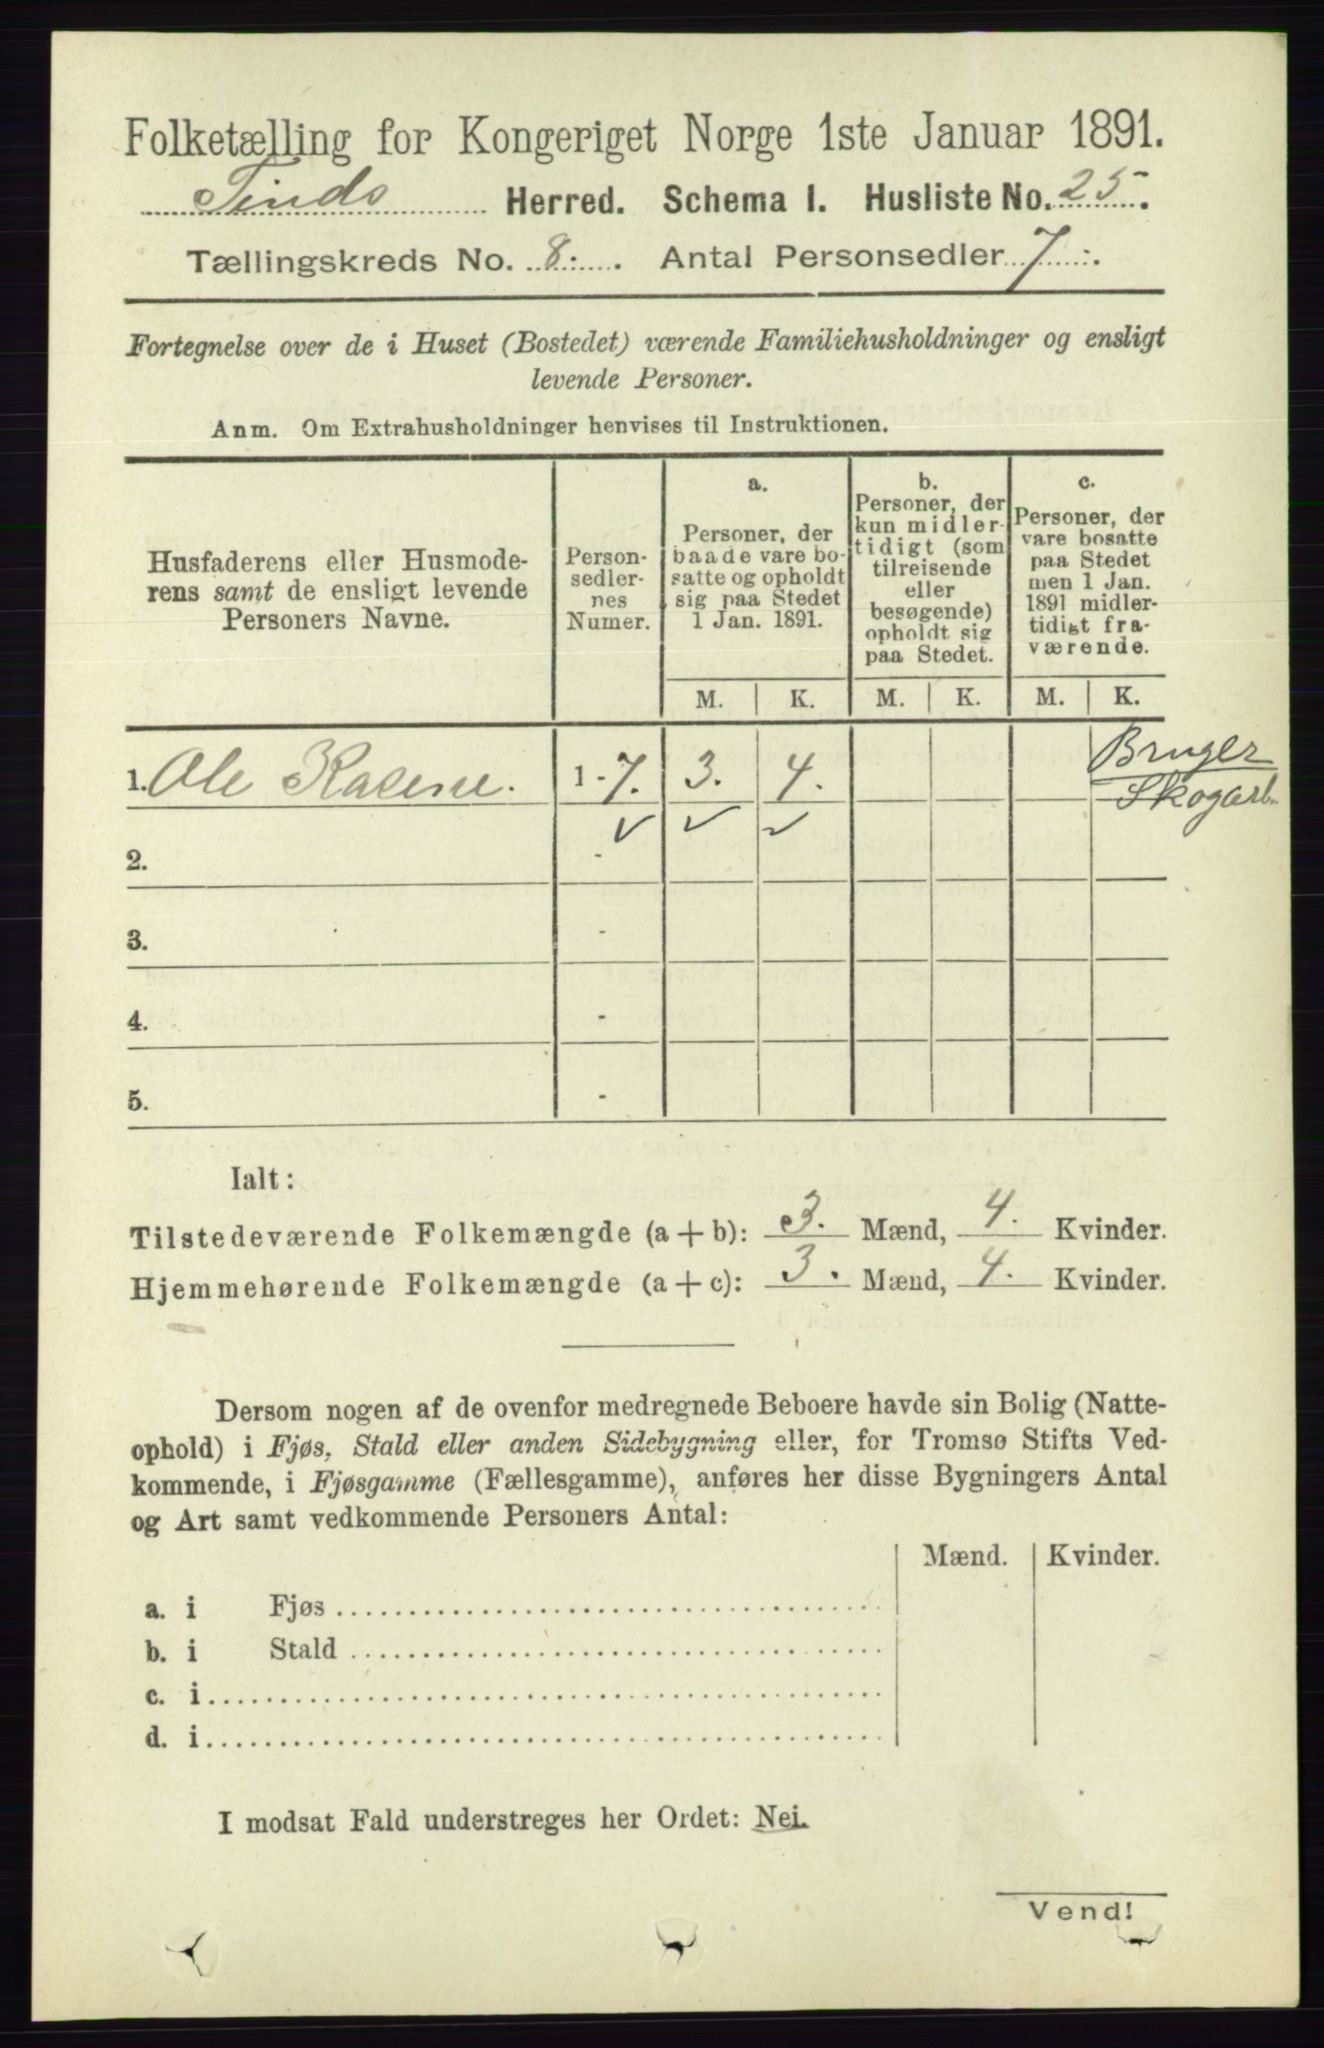 Folketælling for Kongeriget Norge 1ste Januar 1891.
Tinds Herred. Schema I. Husliste No. 25.
Tællingskreds No. 8. Antal Personsedler 7.
Fortegnelse over de i Huset (Bostedet) værende Familiehusholdninger og ensligt
levende Personer.
Anm. Om Extrahusholdninger henvises til Instruktionen.
Husfaderens eller Husmode-
rens samt de ensligt levende
Personers Navne.
Person-
sedler-
nes
Numer.
a.
Personer, der
baade vare bo-
satte og opholdt
sig paa Stedet
1 Jan. 1891.
b.
Personer, der
kun midler-
tidigt (som
tilreisende
eller
besøgende)
opholdt sig
paa Stedet.
c.
Personer, der
vare bosatte
paa Stedet
men 1 Jan.
1891 midler-
tidigt fra-
værende.
M. K. M. K. M. K.
1. Ole 1 - 7. 3. 4. Bruger
Skogarb.
2. -
3. -
4. -
5. -
Ialt:
Tilstedeværende Folkemængde (a + b): 3. Mænd, 4. Kvinder.
Hjemmehørende Folkemængde (a + c): 3. Mænd, 4. Kvinder.
Dersom nogen af de ovenfor medregnede Beboere havde sin Bolig (Natte-
ophold) i Fjøs, Stald eller anden Sidebygning eller, for Tromsø Stifts Ved-
kommende, i Fjøsgamme (Fællesgamme), anføres her disse Bygningers Antal
og Art samt vedkommende Personers Antal:
Mænd. Kvinder.
a. i Fjøs
b. i Stald
c. i
d. i
I modsat Fald understreges her Ordet: Nei.
Vend!